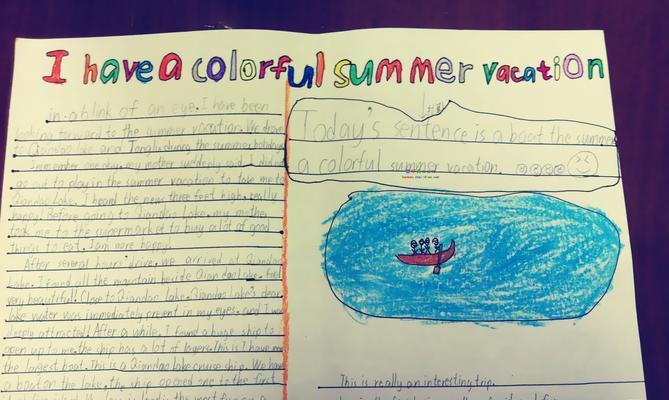 I have a colorful summer vacation
in a blink of an eye. I have been
looking forward to the summer vacation. We drove
to Qiandao Lake and Tangli during the summer holiday
I remember one day, my mother suddenly said, I
go out to play in the summer vacation to take me to
Qiandao Lake. I heard the news three feet high, really
happy! Before going to Qiandao Lake, my mother
took me to the supermarket to buy a lot of good
things to eat. I am more happy.
After several hours' drive, we arrived at Qiandao
Lake. I found all the mountain beside Qiandao Lake. Feel
very beautiful! Close to Qiandao lake, Qiandao Lake's clear
lake water was immediately crevent in my eyes, and I was
deeply attracted! After a while, I found a huge ship to
open up to me, the ship has a lot of layers. This is I have
the largest boat. This is a Qiandao Lake cruise ship. We have
a boat on the lake, the ship opened one to the first
Today's sentence is a boat the summer
a colorful summer vacation.
This is really an interesting trip.